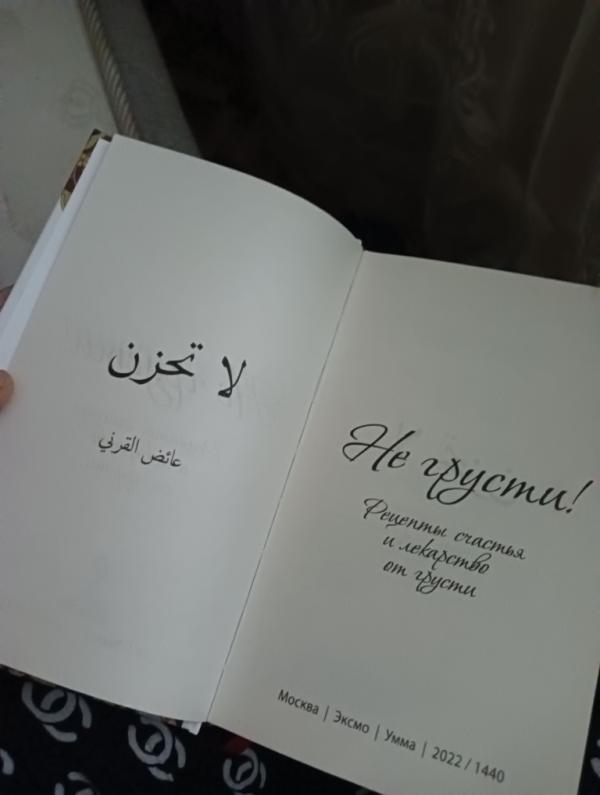 لا تحزن
عائض القرني
Не грусти!
Рецепты счастья
и лекарство
от грусти
Москва | Эксмо | Умма | 2022 / 1440